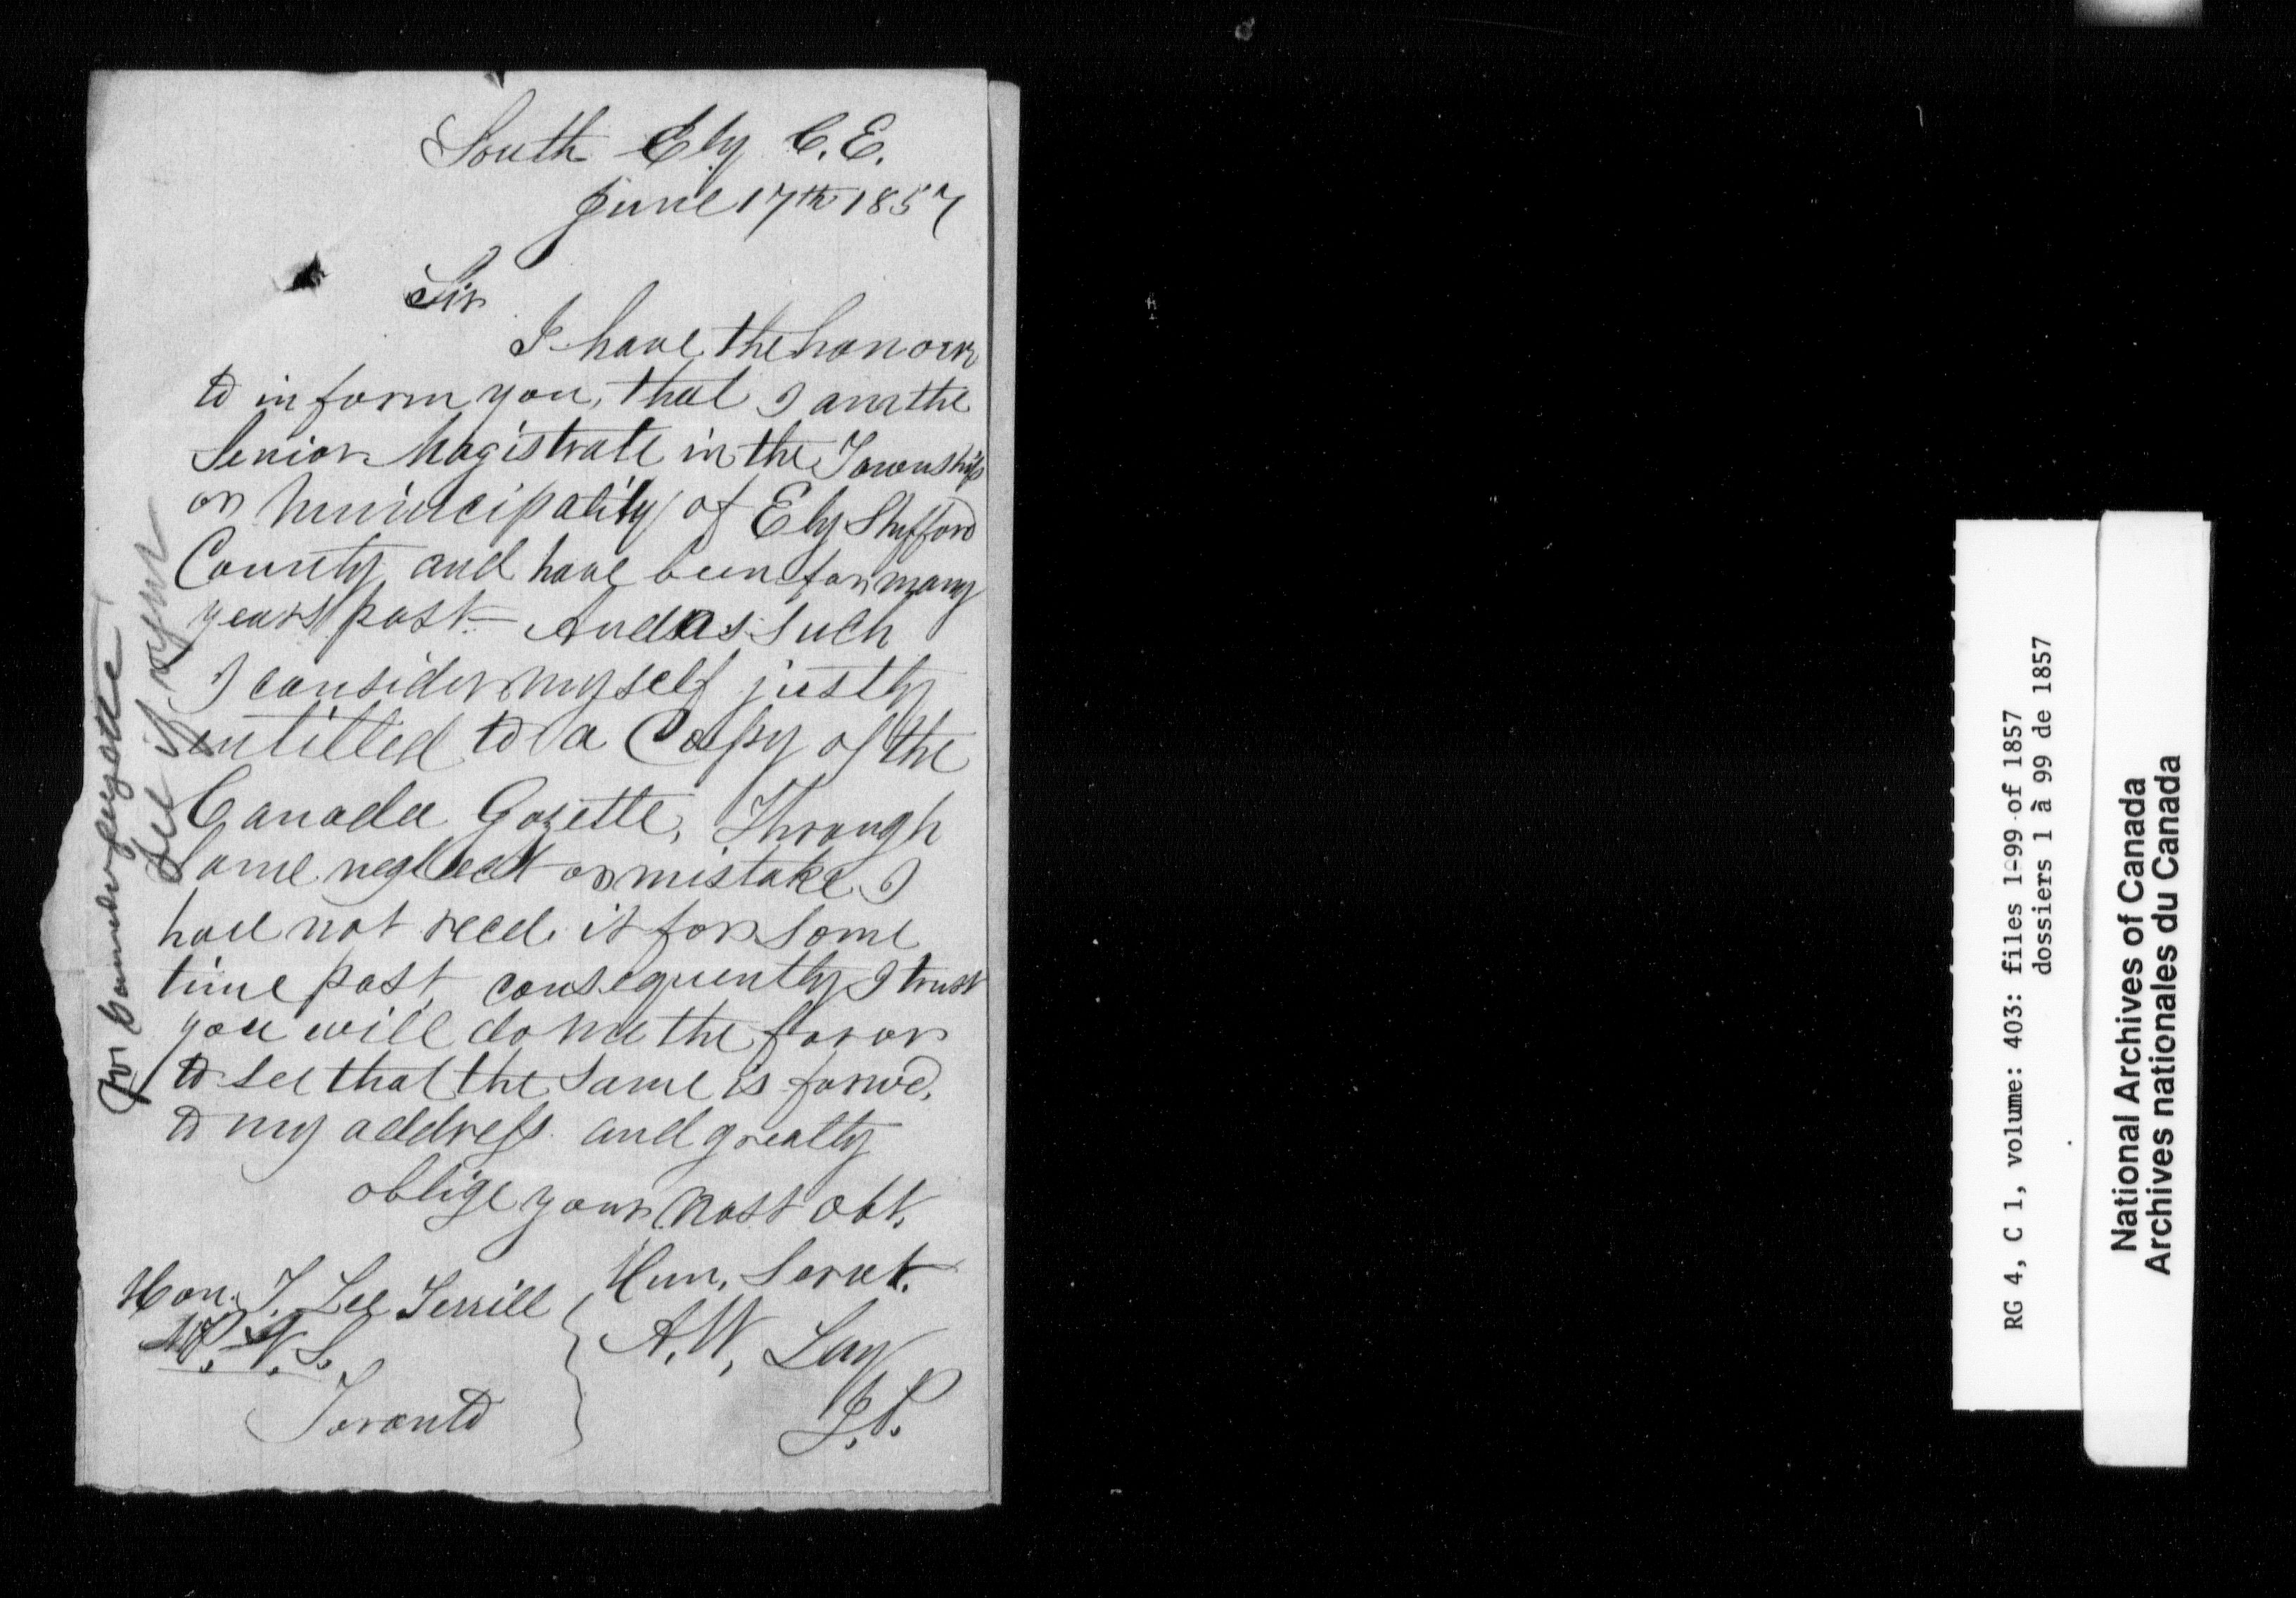 South Ely C.E.
June 17th 1857
Sir
I have the honour
to inform you, that I am the
Senior Magistrate in the Township
or Municipality of Ely Shefford
County and have been for many
years past - And as such
I consider myself justly
entitled to a Copy of the
Canada Gazette, Through
some neglect or mistake I
have not recd. it for some
time past, consequently I trust
you will do me the favor
to see that the same is forwd.
to my address and greatly
oblige your most obt.
Hum. Servt.
A.W. Lay
J.P.
Hon. T. Lee Terrill
M.P.
Toronto
see if
RG 4, C 1, volume: 403: files 1-99 of 1857
dossiers 1 à 99 de 1857
National Archives of Canada
Archives nationales du Canada